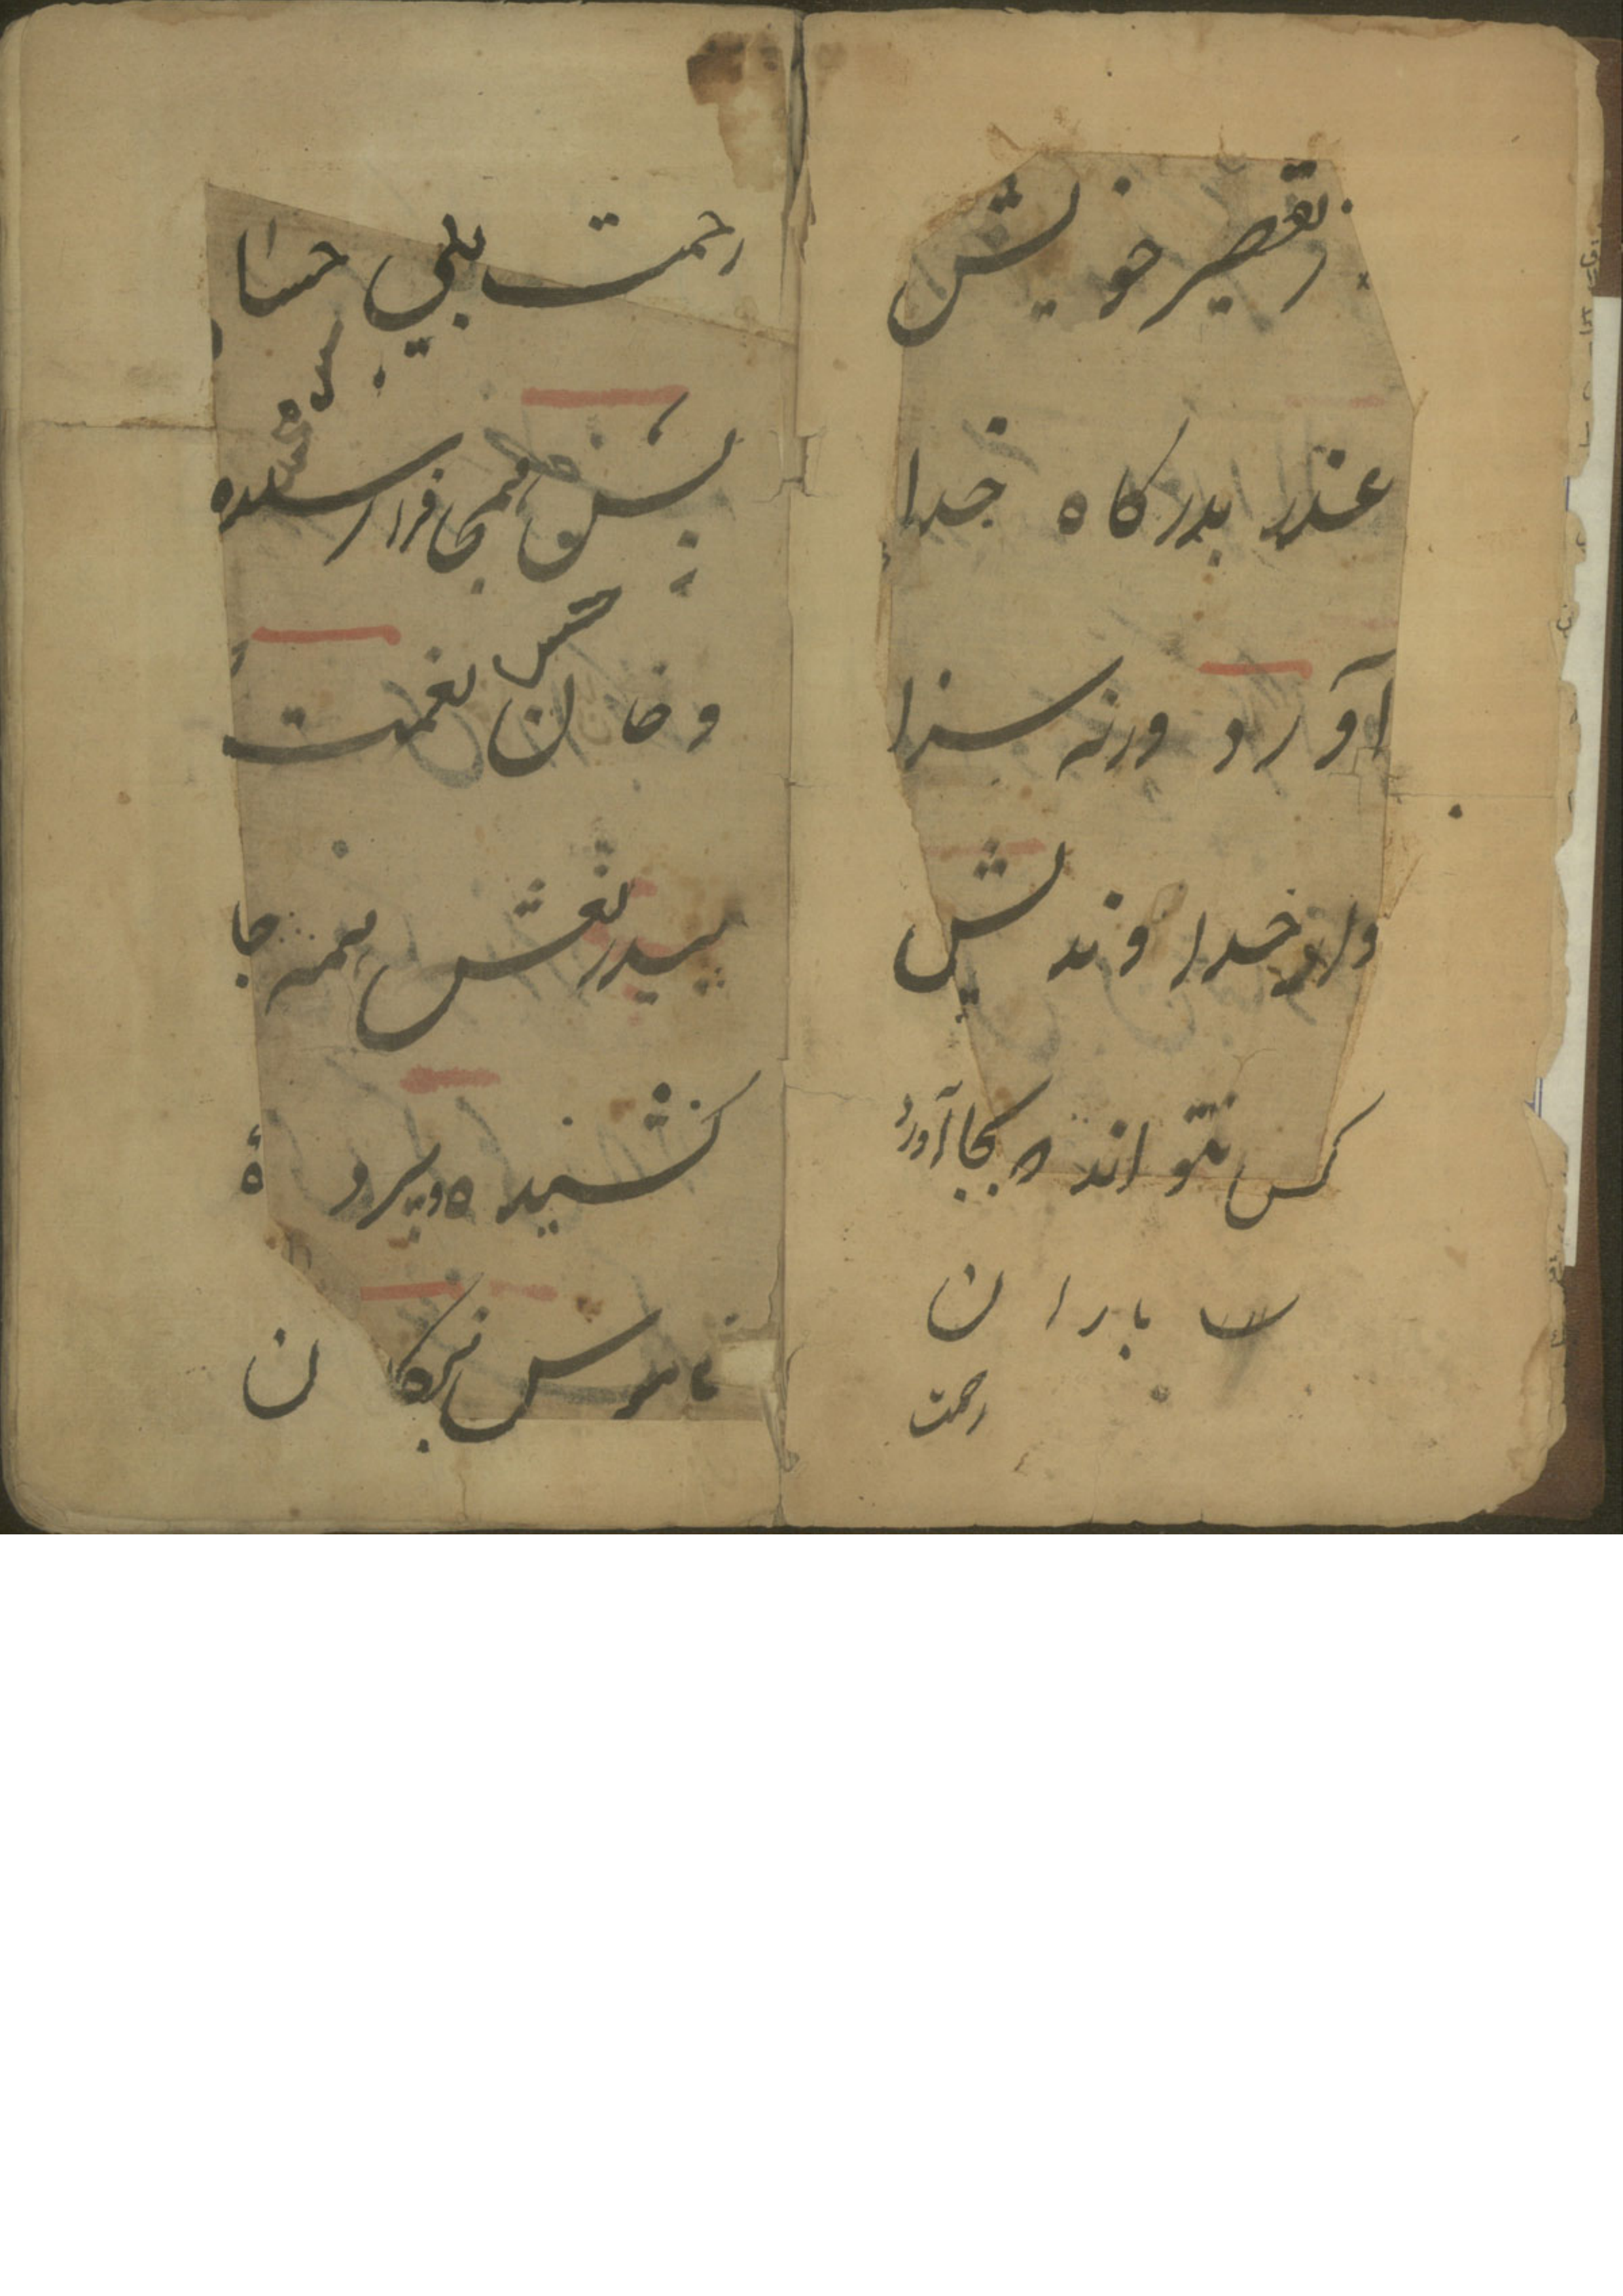 ز تقصیر خویش
عذر بدرکاه خدا
آورد ورنه سزا
وار خدا وندیش
کس نتواند که بجا آورد
باران
رحمت
رحمت بی حسا
همه را رسیده
و خان نعمت
بیدریغش همه جا
کشیده و پرده
ناموس بندکان